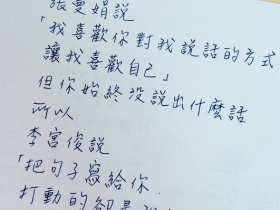 張曼娟說
「我喜歡你對我說話的方式
讓我喜歡自己」
但你始終没說出什麼話
所以
李宮俊說
「把句子寫給你
打動的卻是